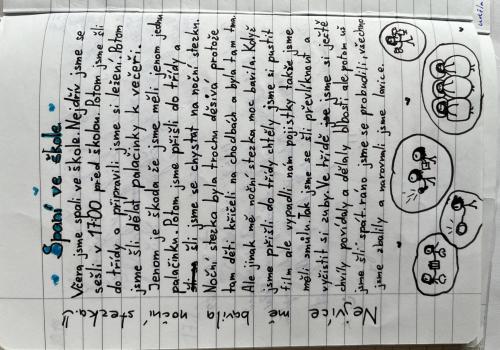 Spaní ve škole
Včera jsme spali ve škole. Nejdřív jsme se
sešli v 17:00 před školou. Potom jsme šli
do třídy a připravili jsme si ležení. Potom
jsme šli dělat palačinky k večeři.
Jenom je škoda že jsme měli jenom jednu
palačinku. Potom jsme přišli do třídy a
šli jsme se chystat na noční stezku.
Noční stezka byla trochu děsivá protože
tam děti křičeli na chodbách a byla tam tma.
Ale jinak mě noční stezka moc bavila. Když
jsme přišli do třídy chtěly jsme si pustit
film ale vypadli nám pojistky takže jsme
měli smůlu. Tak jsme se šli převlíknout a
vyčistit si zuby. Ve třídě jsme si ještě
chvíly povídaly a dělaly blbosti ale potom už
jsme šli spát. ráno jsme se probudili, všechno
jsme zbalily a narovnali jsme lavice.
Nejvíce mě bavila noční stezka!!